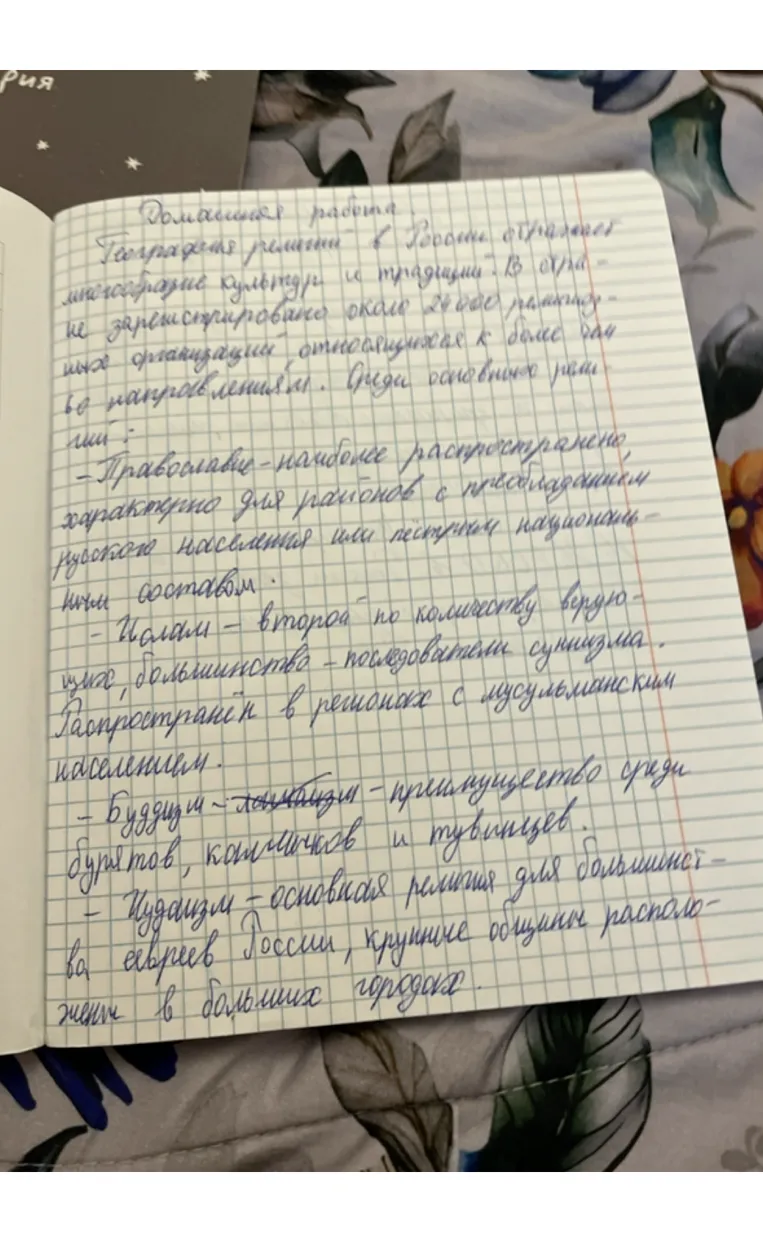 рия
Домашняя работа.
География религий в России отражает
многообразие культур и традиций. В стра-
не зарегистрировано около 24000 религиоз-
ных организаций, относящихся к более чем
60 направлениям. Среди основных рели-
гий:
- Православие - наиболее распространено,
характерно для районов с преобладанием
русского населения или пёстрым националь-
ным составом.
- Ислам - второй по количеству верую-
щих, большинство - последователи суннизма.
Распространён в регионах с мусульманским
населением.
- Буддизм - - преимущество среди
бурятов, калмыков и тувинцев.
- Иудаизм - основная религия для большинст-
ва евреев России, крупные общины располо-
жены в больших городах.